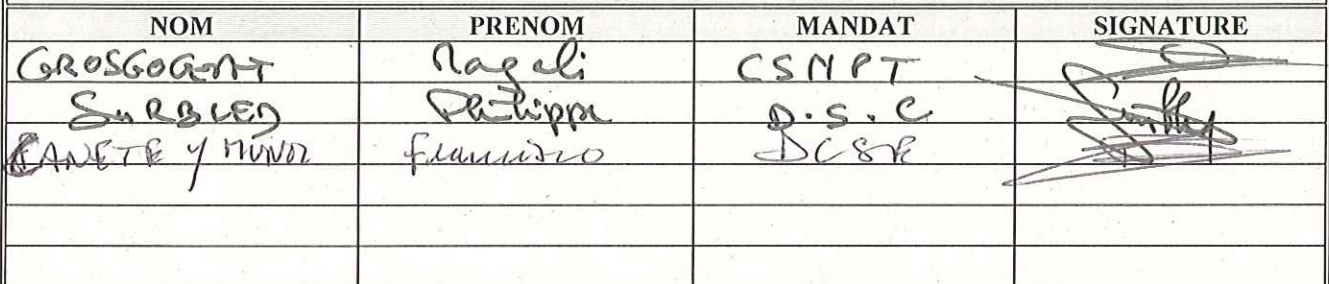 NOM PRENOM MANDAT SIGNATURE
GROSGOGEAT Magali CSNPT
SURBLED Philippe D.S.C
CANETE Y MUNOZ Francisco DCSR